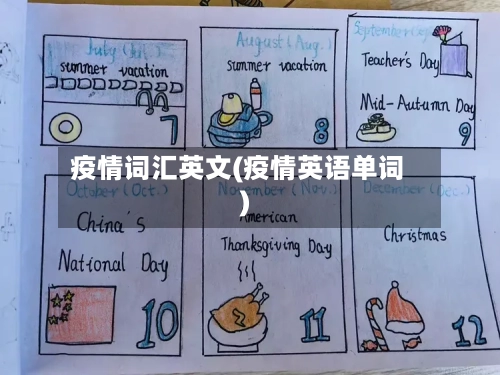 July (Jul.)
summer vacation
7
August (Aug.)
summer vacation
8
September (Sep.)
Teacher's Day
Mid-Autumn Day
9
疫情词汇英文(疫情英语单词
)
October (Oct.)
China's
National Day
10
November (Nov.)
American
Thanksgiving Day
11
December (Dec.)
Christmas
12